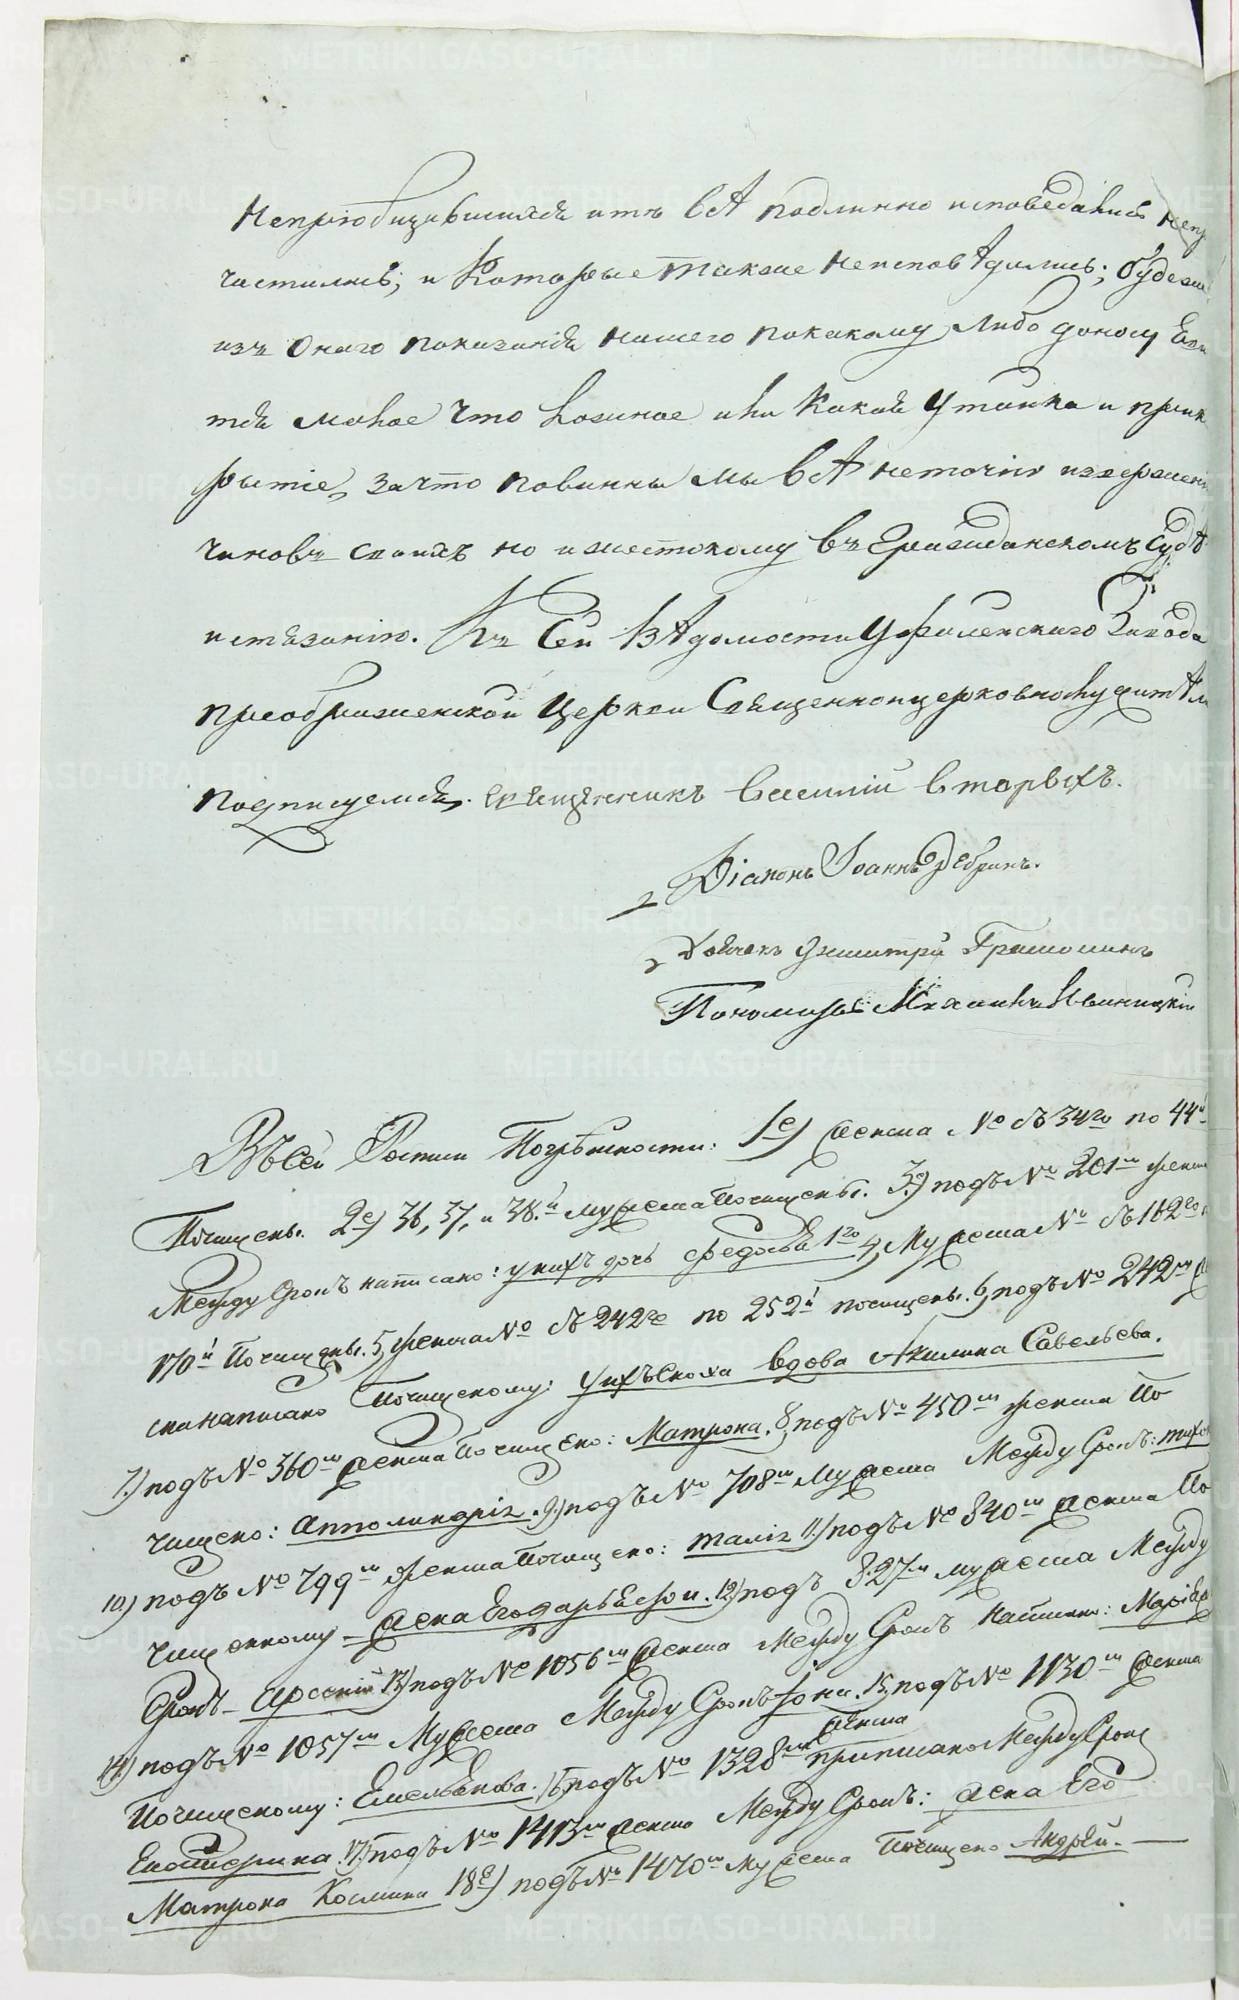 Непріобщившихся итѣ всѣ подлинно исповѣдались непр
частились, и которые также неисповѣдились; будеже
изъ онаго показанія нашего покакому либо доносу
тся мною что ложное или какая утайка и прик
рытіе, зачто повинны мы всѣ неточію изверженію
чиновъ своихъ но и жестокому въ Гражданскомъ судѣ
истязанію. Къ сей Вѣдомости Уфалейскаго Завода
преображенской Церкви Священноицерковнослужитѣли
подписуемся. священникъ василій вторыхъ.
Діаконъ Іоаннъ Ребринъ.
Дьячекъ димитрій Грамолинъ
Пономарь Михаилъ Ивановицкій
Въ сей Росписи Погрѣшности: 1е) женска № съ 34го по 44й
Почищены. 2е) 36, 37, и 38.й мужеска Почищены. 3е) подъ № 201м женска
Между строкъ написано: у нихъ дочь Федосья 1го 4, Мужеска № съ 162го
170й Почищены. 5, женска № съ 242го по 252й почищены. 6, подъ № 242м
ска написано Почищеному: у ихъ сноха вдова Акилина Савельева.
7.) подъ № 360м женска Почищено: Матрона. 8, подъ № 450м женска По
чищено: Апполинарія. 9.) подъ № 708м Мужеска Между строкъ:
10.) подъ № 799м женска Почищено: 11.) подъ № 840м женска По
чищенному – жена Его Дарья 12.) подъ 827м мужеска Между
строкъ – Арсеній 13) подъ № 1056м женска Между строкъ Написано: Марія
14) подъ № 1057м Мужеска Между строкъ Іона. 15, подъ № 1130м женска
Почищеному: Емельянова. 16, подъ № 1328м женска приписано Между строкъ
Екатерина 17) подъ № 1413м женска Между строкъ: жена Его
Матрона Космина 18е) подъ № 1470м Мужеска Почищено Андрей. —
METRIKI.GASO-URAL.RU